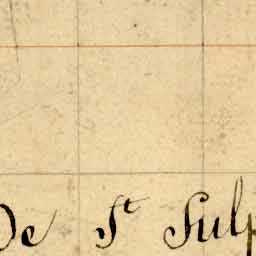 De St Sulp